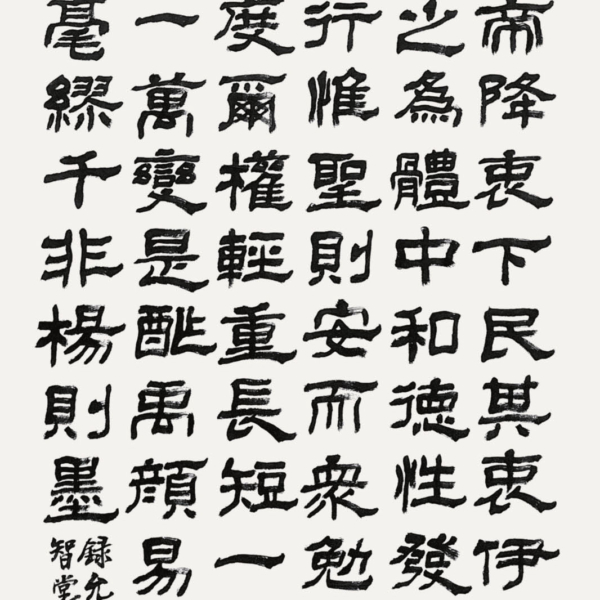 帝降衷下民其衷伊
之為體中和德性發
行惟聖則安而衆勉
度爾權輕重長短一
一萬變是禹顔易
毫繆千非楊則墨
録允
智堂